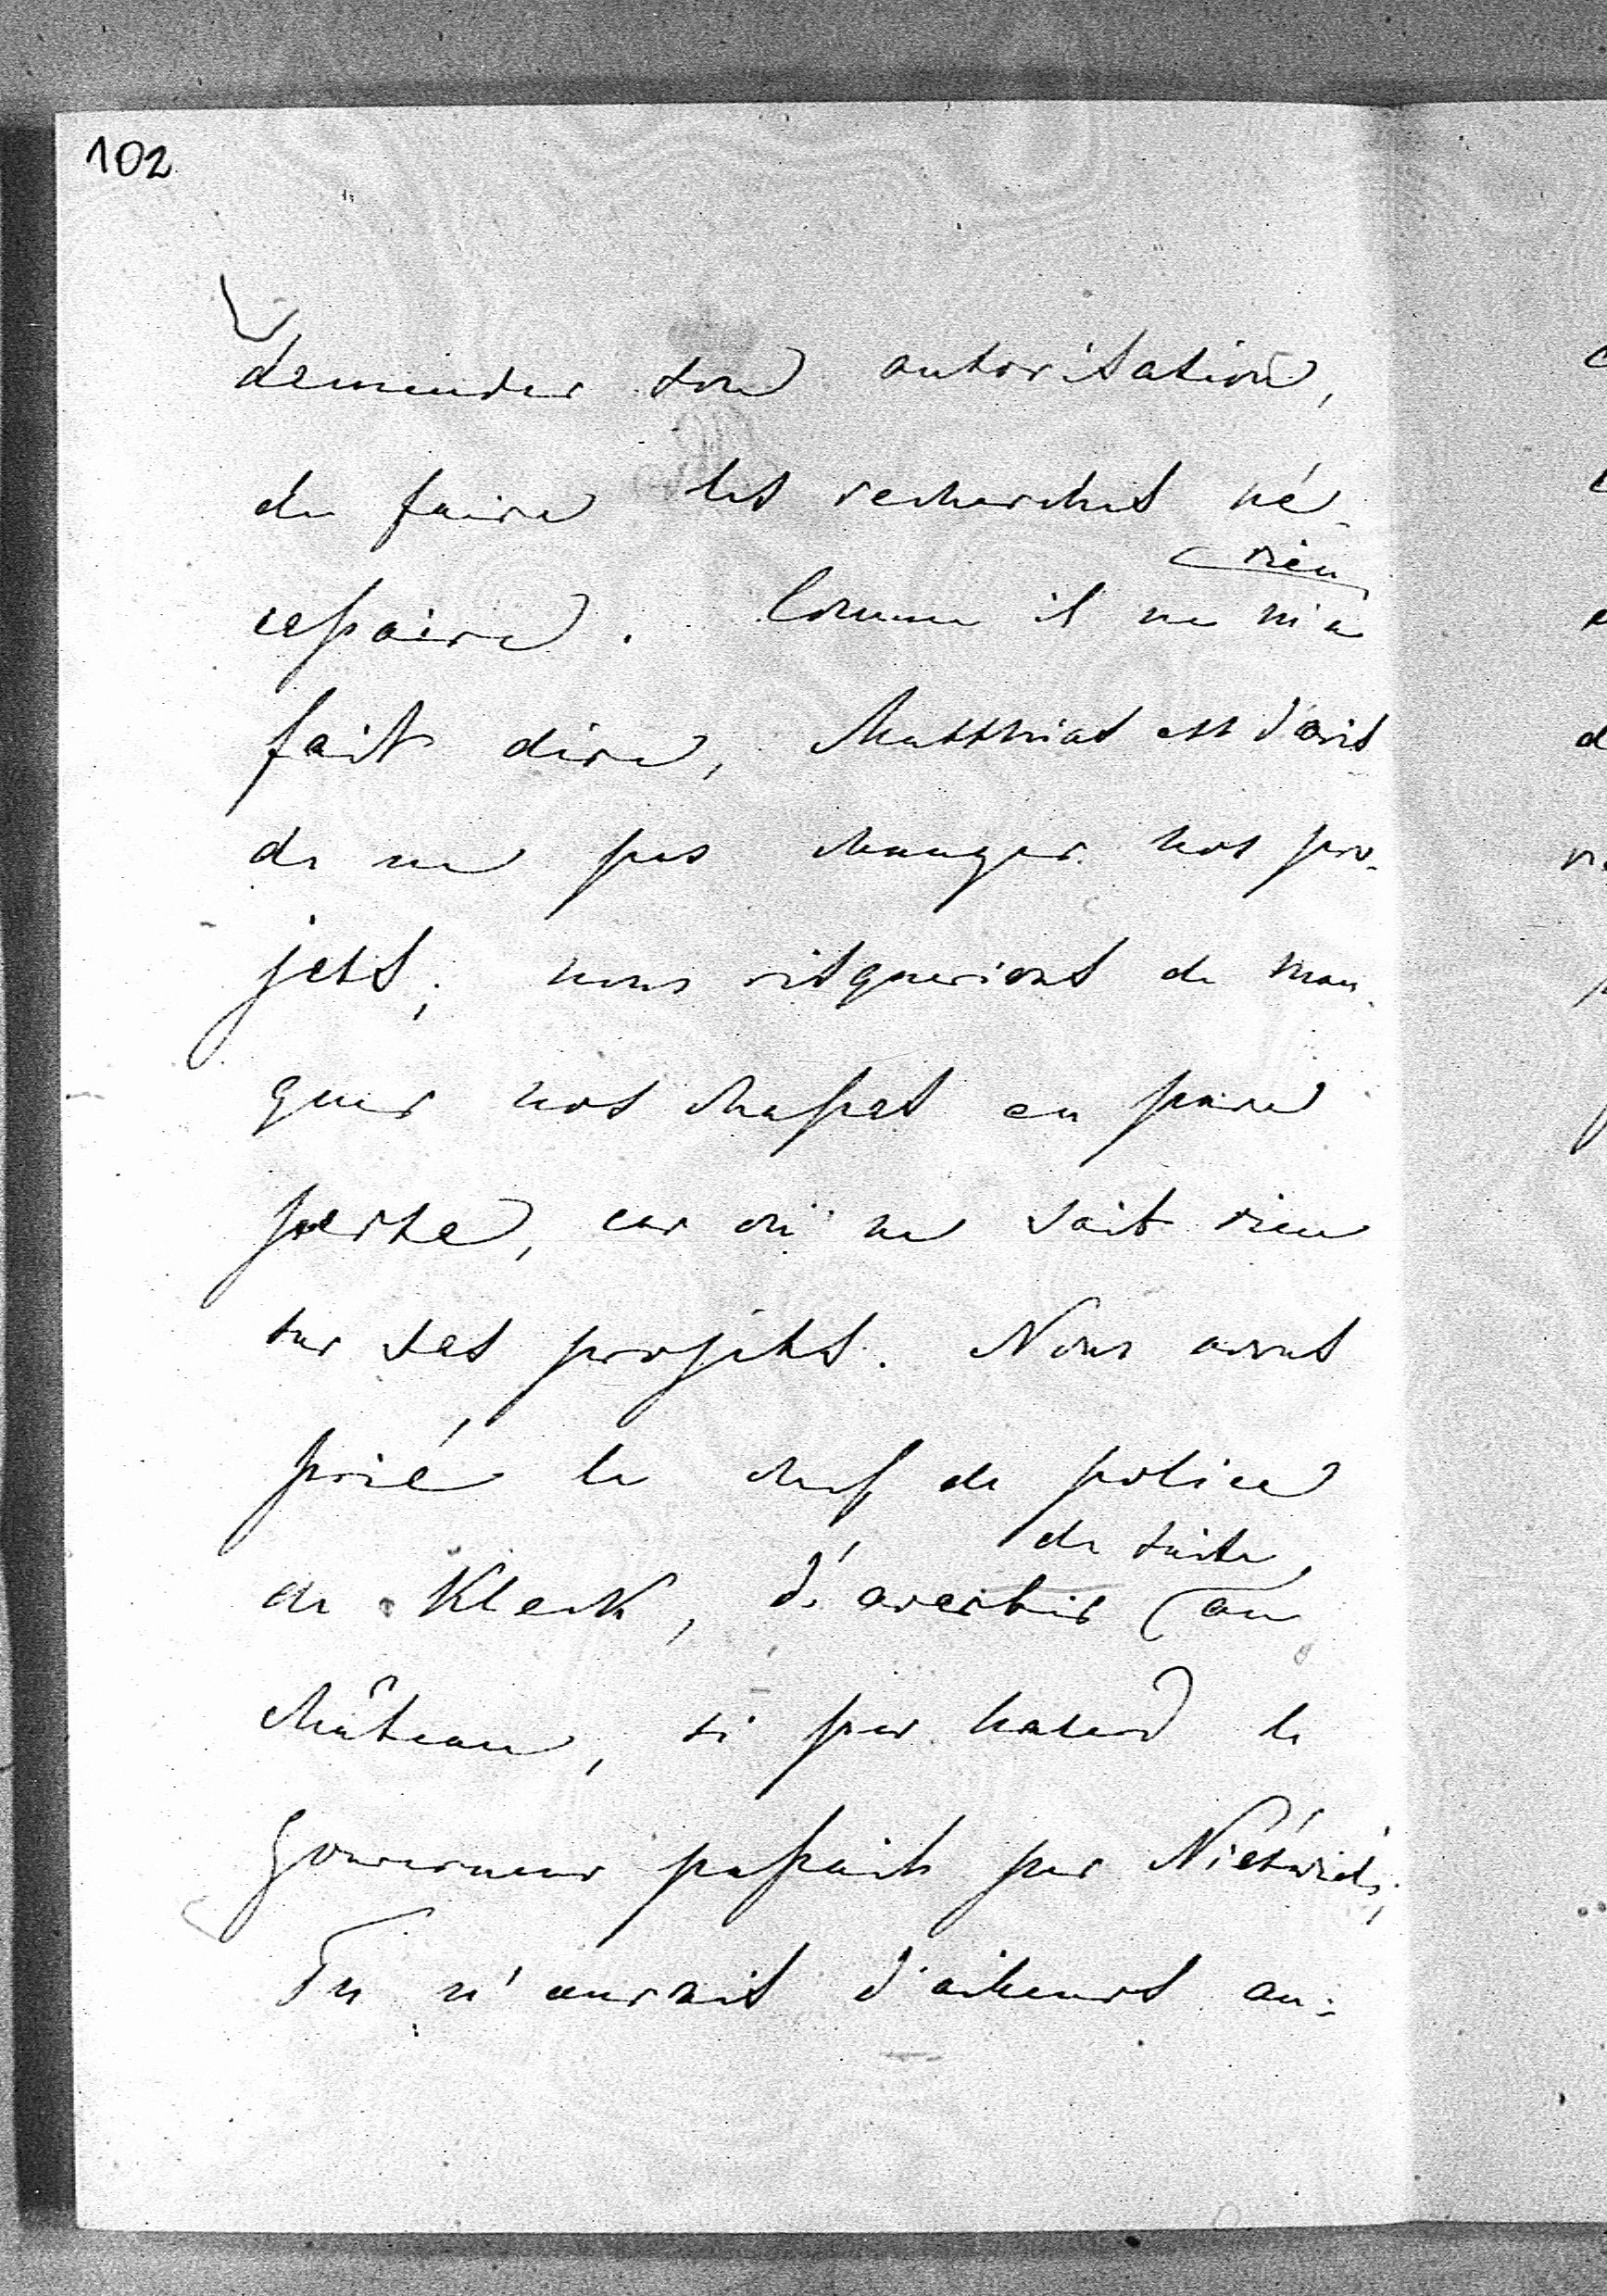 102
demander son autorisation,
de faire les recherches né-
rien
cessaire. Comme il ne m'a
fait dire, Matthias est d'avis
de ne pas changer nos pro-
jets; nous risquerions de man-
quer nos chasses en pure
perte, car on ne sait rien
sur ses projets. Nous avons
prié le chef de police
de suite
de Kleck, d'avertir au
château, si par hasard le
Gouverneur passait par Nieświeź;
Tu n'aurais d'ailleurs au-